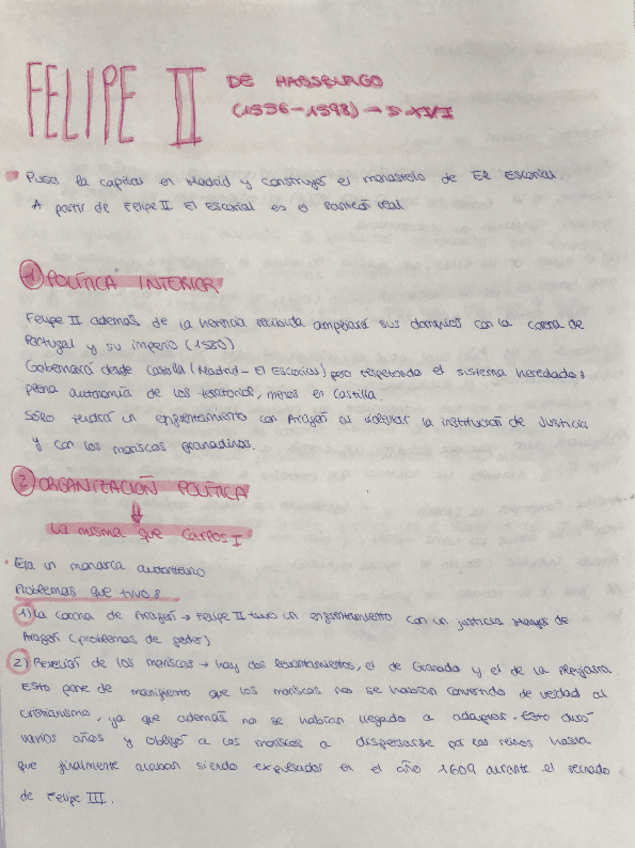 FELIPE II DE HABSBURGO
(1556-1598) → S XVI
Puso la capital en Madrid y construyó el monasterio de El Escorial.
A partir de Felipe II El Escorial es el Panteón real
1 POLÍTICA INTERIOR
Felipe II además de la herencia recibida ampliará sus dominios con la corona de
Portugal y su imperio (1580)
Gobernará desde Castilla (Madrid - El Escorial) pero respetando el sistema heredado:
plena autonomía de los territorios, menos en Castilla.
Sólo tendrá un enfrentamiento con Aragón al la institución de Justicia
y con los moriscos granadinos.
2 ORGANIZACIÓN POLÍTICA
↓
La misma que Carlos I
· Era un monarca autoritario
Problemas que tuvo:
1) La corona de Aragón → Felipe II tuvo un enfrentamiento con un justicia Mayor de
Aragón (problemas de poder)
2) Revelión de los moriscos → hay dos levantamientos, el de Granada y el de la Alpujarra.
Esto pone de manifiesto que los moriscos no se habían convertido de verdad al
cristianismo, ya que además no se habían llegado a adaptar. Esto duró
varios años y obligó a los moriscos a dispersarse por los reinos hasta
que finalmente acaban siendo expulsados en el año 1609 durante el reinado
de Felipe III.